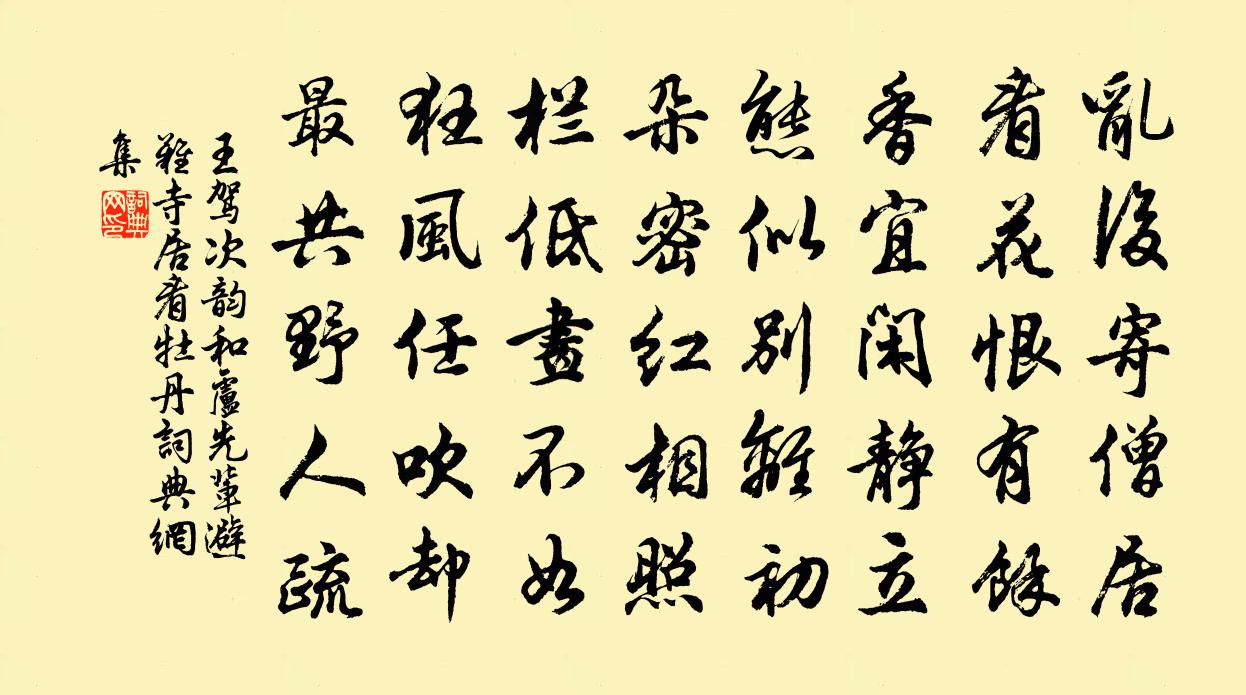 亂後寄僧居
看花恨有餘
香宜閑靜立
態似別離初
朵密紅相照
栏低畫不如
狂風任吹却
最共野人疏
王驾次韵和盧先輩避
難寺居看牡丹詞典網
集
詞典
网印